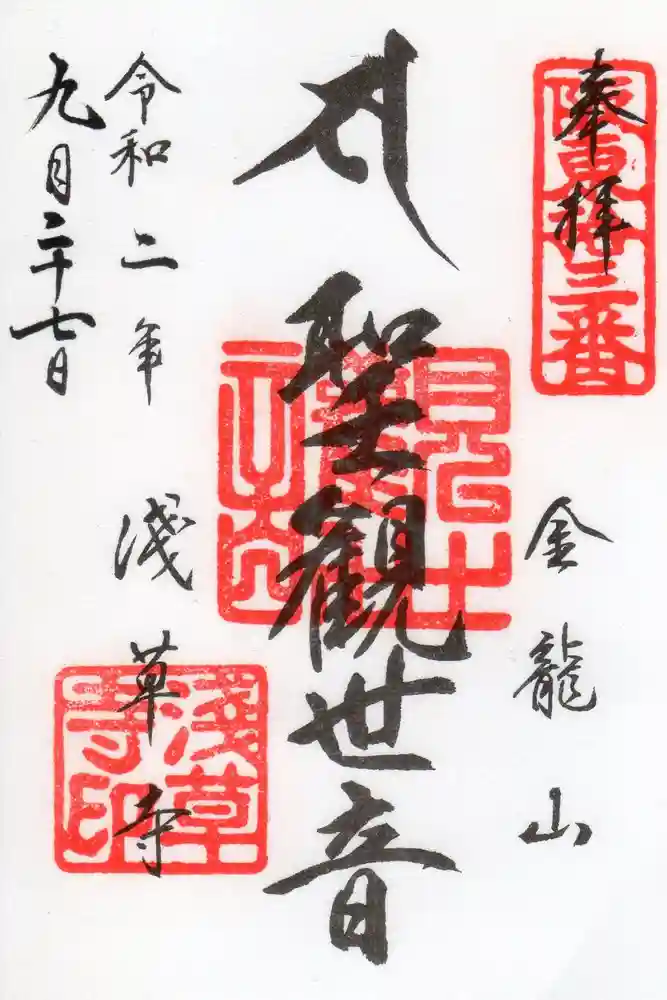 奉拝
阪東拾三番
金龍山
聖観世音
令和二年
九月二十七日
淺草寺
淺草寺印